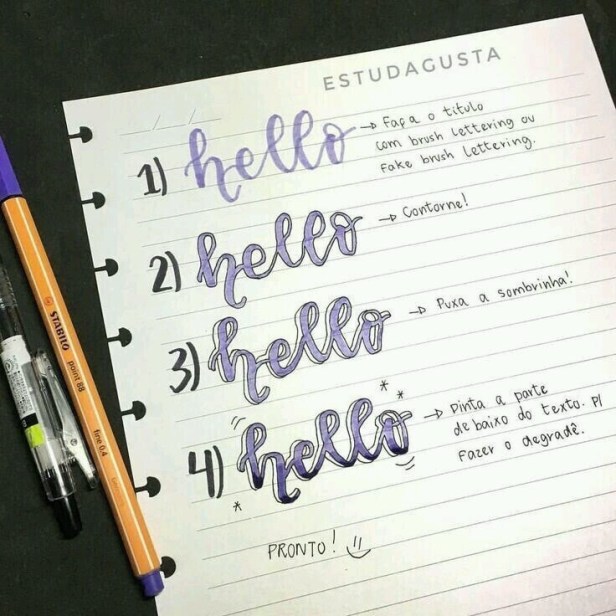 ESTUDAGUSTA
1) hello → Faça o titulo
com brush lettering ou
Fake brush lettering.
2) hello → Contorne!
3) hello → Puxa a sombrinha!
4) hello → Pinta a parte
de baixo do texto. p/
Fazer o degradê.
PRONTO!
STABILO point 88 fine 0,4